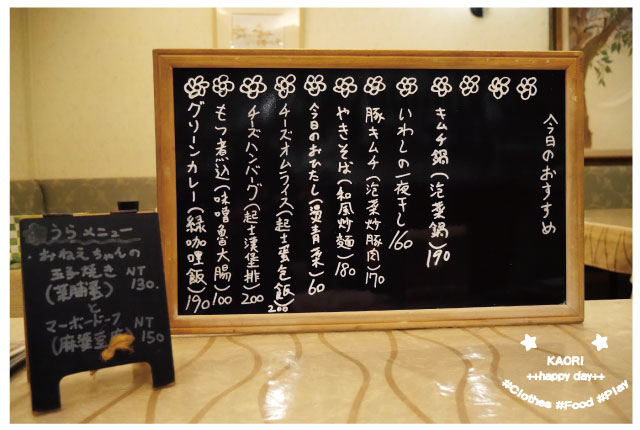 今日のおすすめ
キムチ鍋(泡菜鍋)190
いわしの一夜干し 160
豚キムチ(泡菜炒豚肉)170
やきそば(和風炒麵)180
今日のおひたし(燙青菜)60
チーズオムライス(起士蛋包飯)200
チーズハンバーグ(起士漢堡排)200
もつ煮込(味噌魯大腸)100
グリーンカレー(綠咖哩飯)190
うらメニュー
・おねえちゃんの
玉子焼き NT
(菜脯蛋) 130.
と
マーボードーフ NT
(麻婆豆腐) 150
KAORI
++happy day++
#Clothes #Food #Play